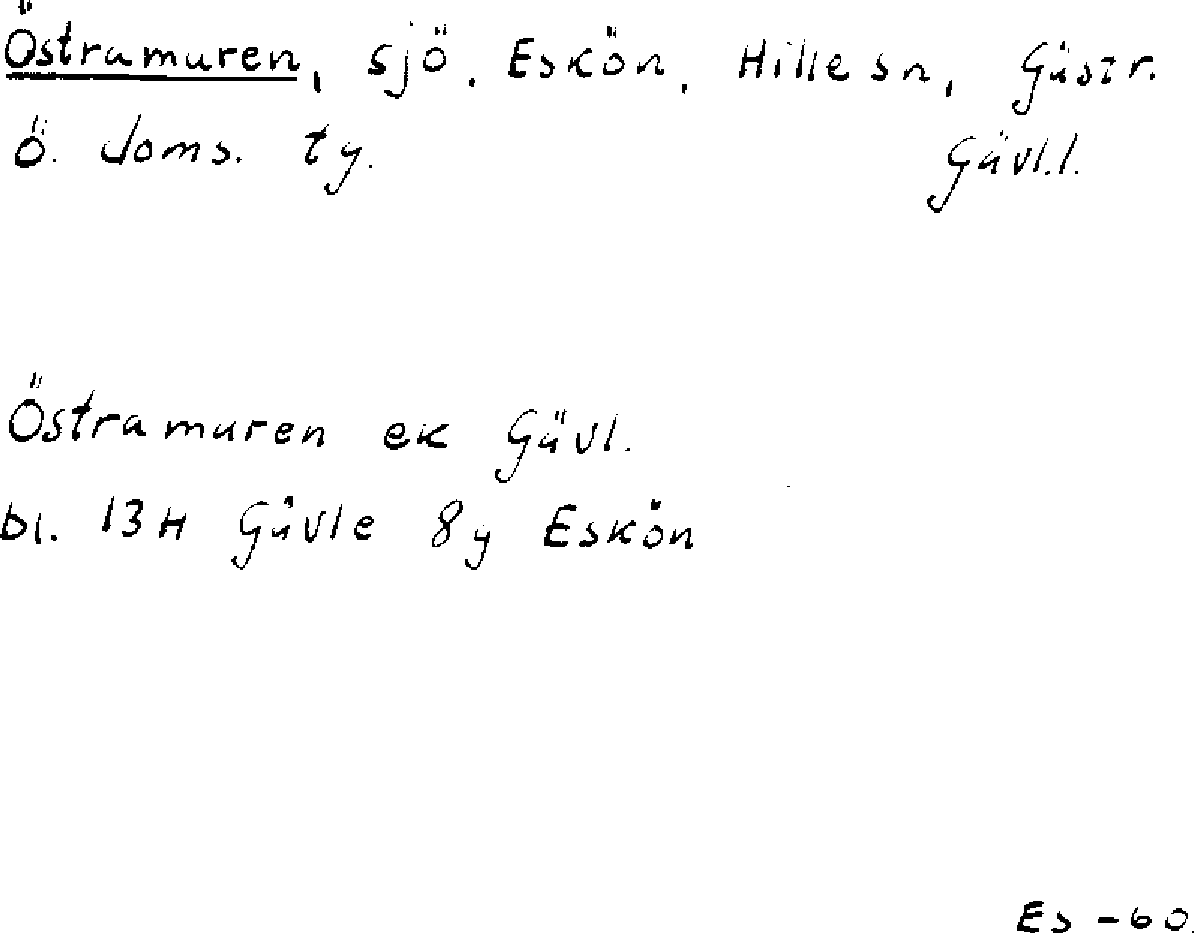 Östramuren, sjö, Eskön, Hille sn, Gästr.
Ö. doms. ty. Gävl.l.
Östramuren ek Gävl.
bl. 13H Gävle 8y Eskön
Es -60.